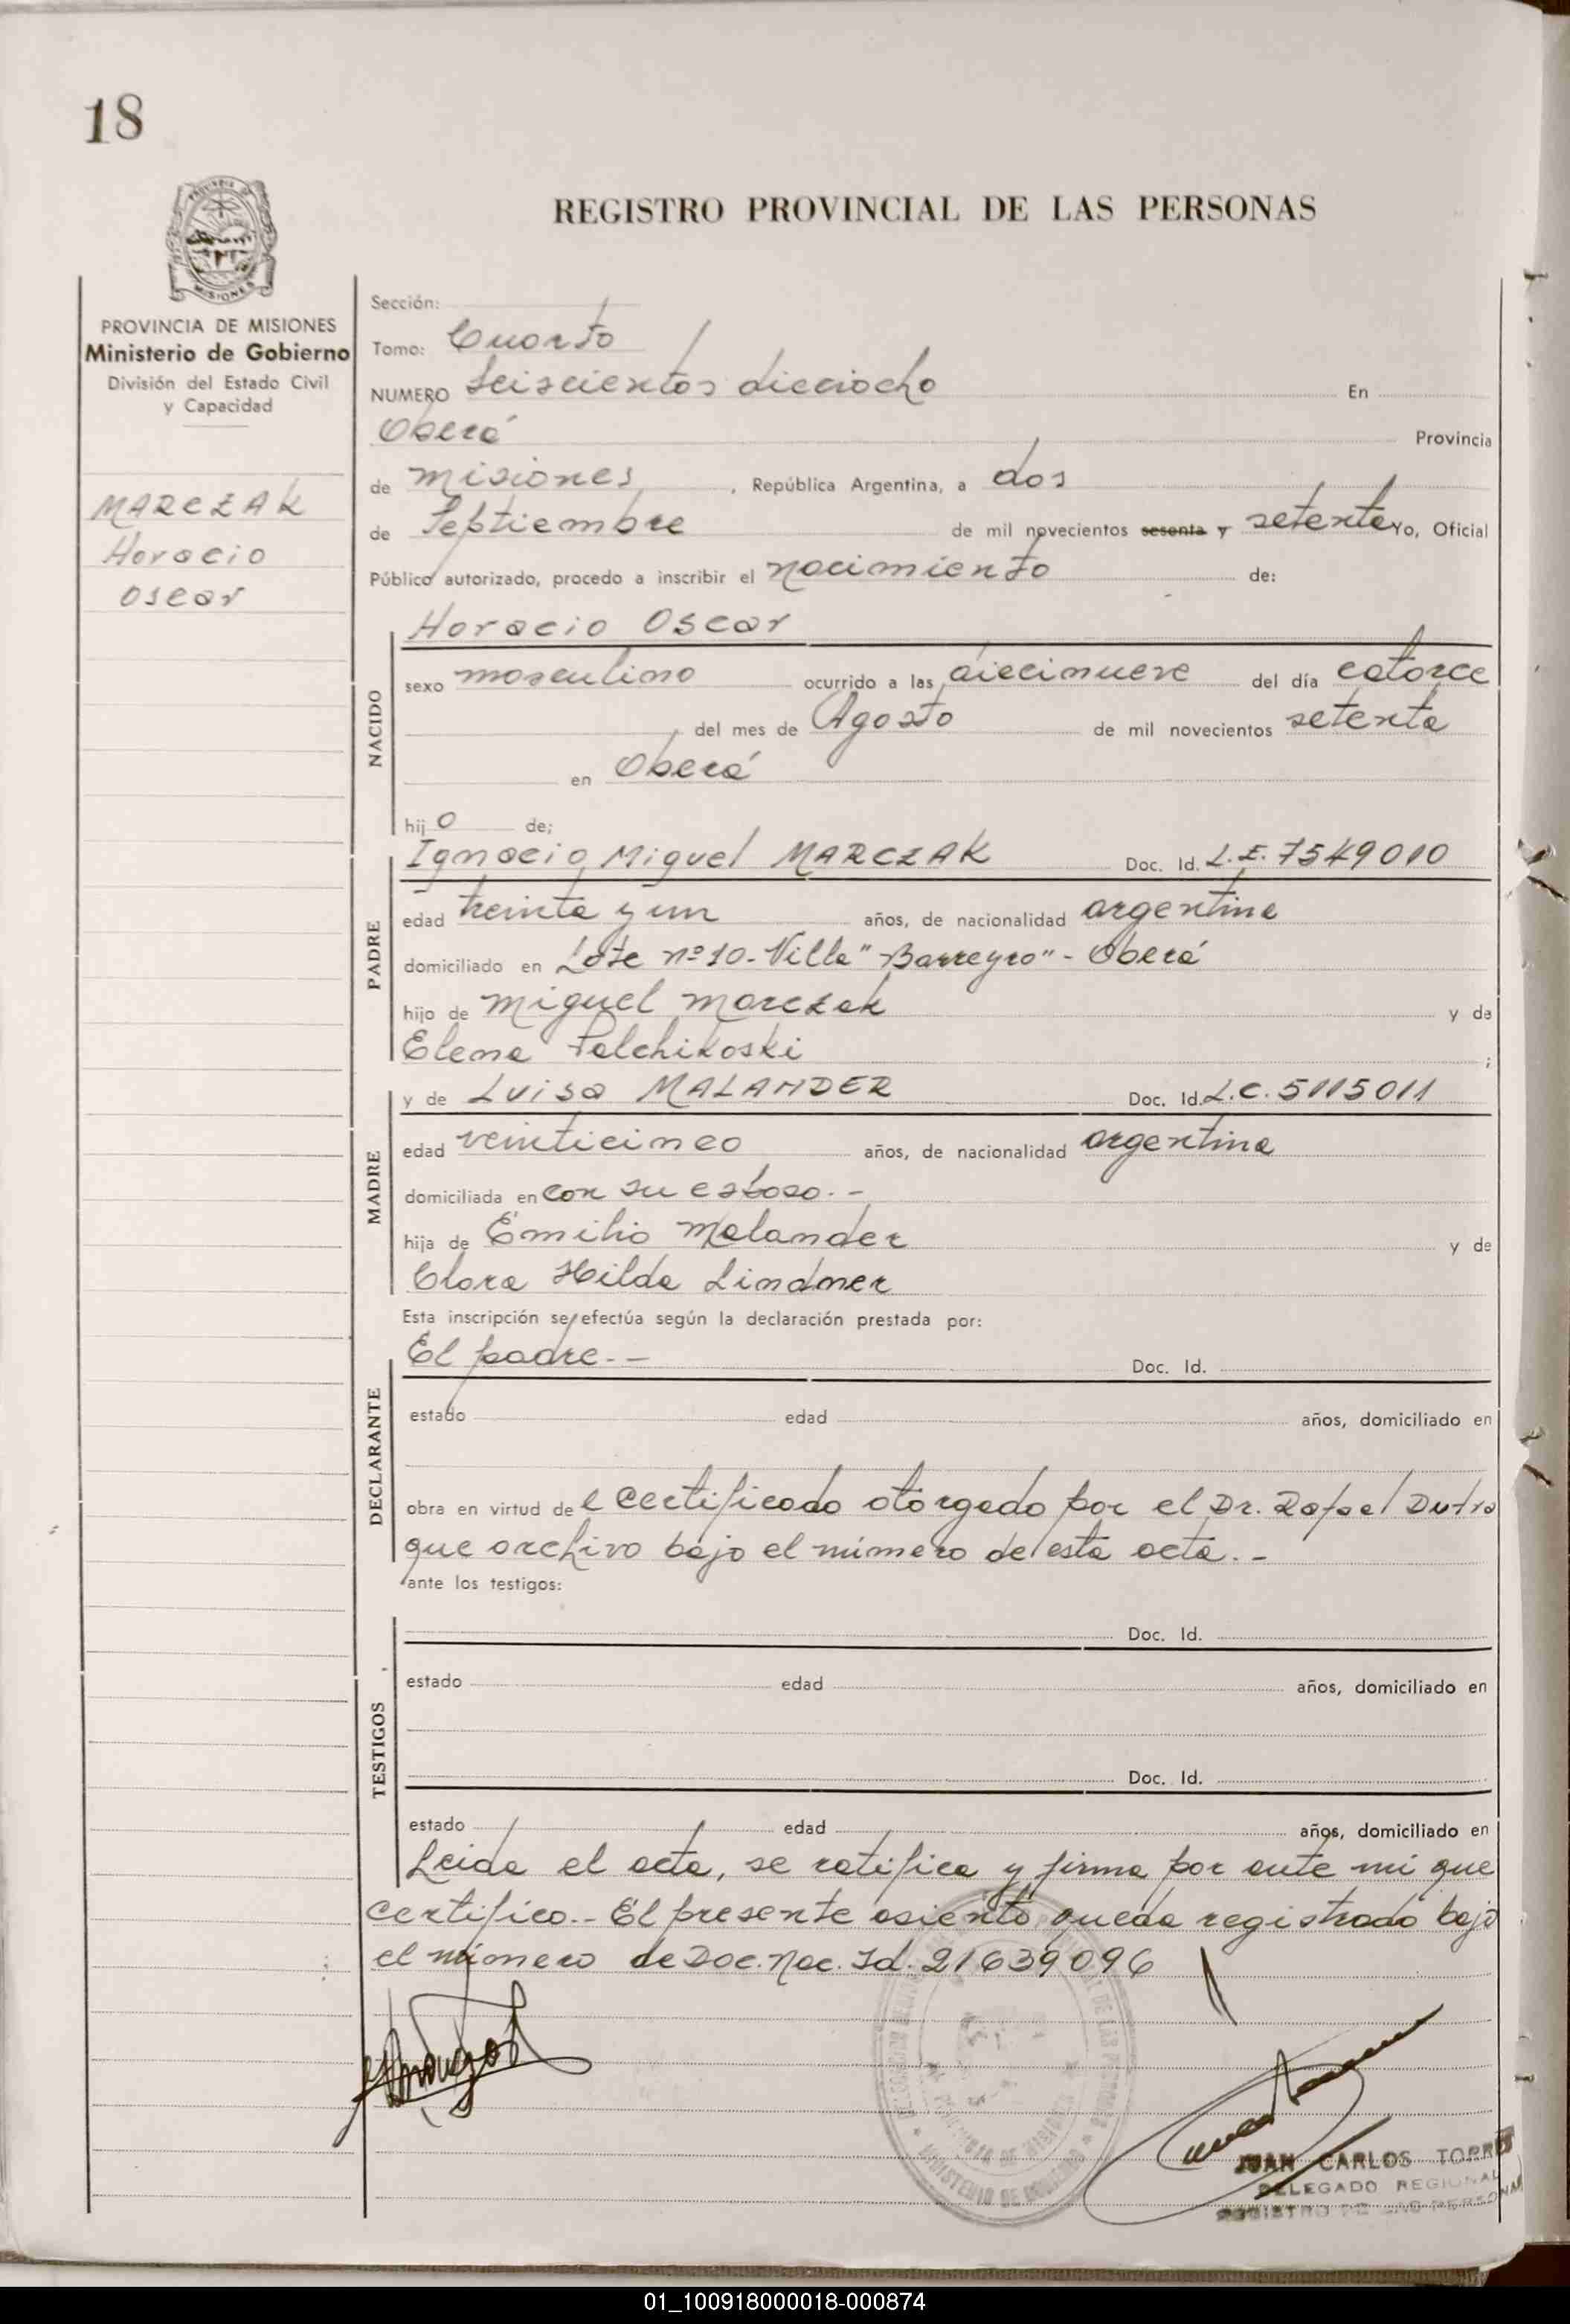 18
PROVINCIA DE MISIONES
Ministerio de Gobierno
División del Estado Civil
y Capacidad
MARCZAK
Horacio
Oscar
REGISTRO PROVINCIAL DE LAS PERSONAS
Sección:
Tomo: Cuarto
NUMERO Seiscientos dieciocho En
Oberá Provincia
de Misiones, República Argentina, a dos
de Septiembre de mil novecientos sesenta y setenta Yo, Oficial
Público autorizado, procedo a inscribir el nacimiento de:
Horacio Oscar
NACIDO
sexo masculino ocurrido a las diecinueve del día catorce
del mes de Agosto de mil novecientos setenta
en Oberá
hijo de;
Ignacio Miguel MARCZAK Doc. Id. L.E. 7549010
PADRE
edad treinta y un años, de nacionalidad argentina
domiciliado en Lote nº 10 - Villa "Barreyro" - Oberá
hijo de Miguel Marczak y de
Elena Palchikoski ;
y de Luisa MALANDER Doc. Id. L.C. 5115011
MADRE
edad veinticinco años, de nacionalidad argentina
domiciliada en con su esposo.-
hija de Emilio Malander y de
Clara Hilda Lindner
Esta inscripción se efectúa según la declaración prestada por:
El padre.-- Doc. Id.
DECLARANTE
estado edad años, domiciliado en
obra en virtud del certificado otorgado por el Dr. Rafael Dutra
que archivo bajo el número de esta acta.-
ante los testigos:
Doc. Id.
TESTIGOS
estado edad años, domiciliado en
Doc. Id.
estado edad años, domiciliado en
Leida el acta, se ratifica y firma por ante mi que
certifico.- El presente asiento queda registrado bajo
el número de Doc. Nac. Id. 21639096
MINISTERIO DE GOBIERNO
JUAN CARLOS TORRES
DELEGADO REGIONAL
REGISTRO DE LAS PERSONAS
01_100918000018-000874